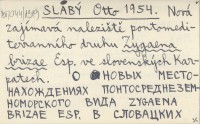 SLABÝ Otto 1954. Nová
zajímavá naleziště pontomedi-
terranního druhu Zygaena
brizae Esp. ve slovenských Kar-
patech. О НОВЫХ МЕСТО-
НАХОЖДЕНИЯХ ПОНТОСРЕДНЕЗЕМ-
НОМОРСКОГО ВИДА ZYGAENA
BRIZAE ESP. В СЛОВАЦКИХ